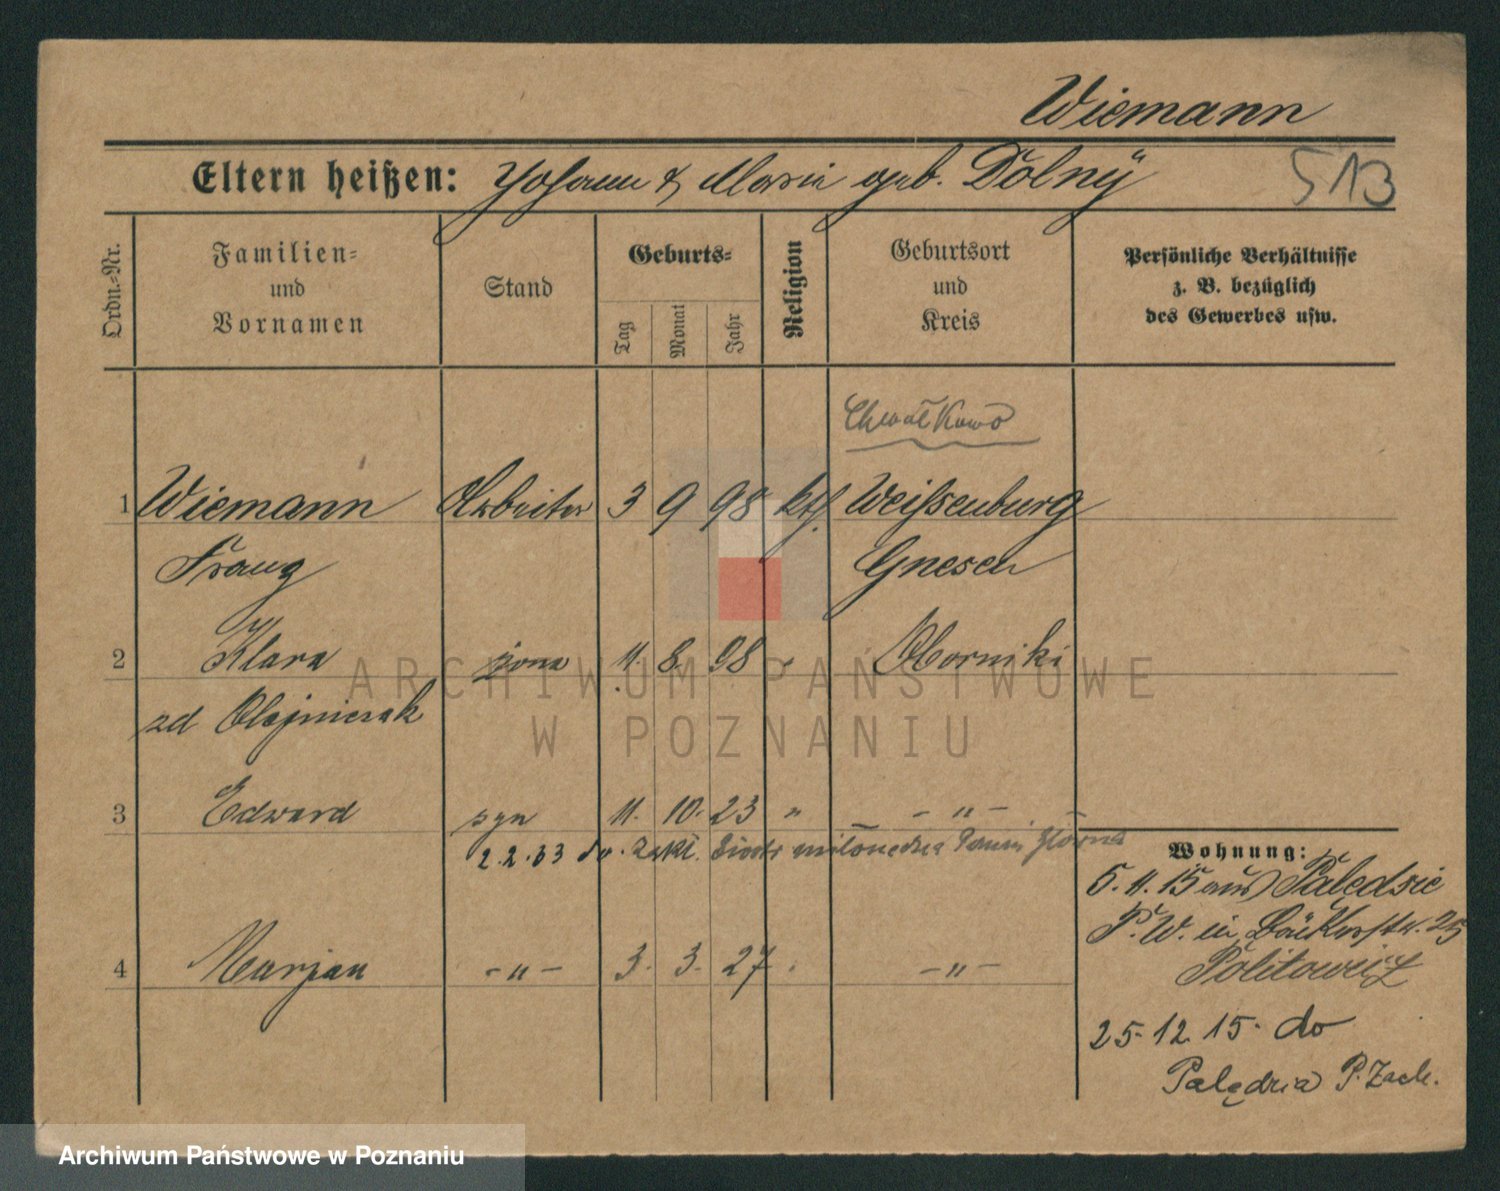 Wiemann
Eltern heißen: Johann & Maria geb. Dolny
513
Ordn.-Nr.
Familien-
und
Vornamen
Stand
Geburts-
Tag
Monat
Jahr
Religion
Geburtsort
und
Kreis
Persönliche Verhältnisse
z. B. bezüglich
des Gewerbes usw.
Chwałkowo
1 Wiemann Arbeiter 3 9 98 kth. Weißenburg
Franz Gnesen
2 Klara żona 11. 8. 98 " Oborniki
zd Olejniczak
3 Edward syn 11. 10. 23 " - " -
2.2.33 do Zakł.
4 Marjan - " - 3. 3. 27 - " -
Wohnung:
5.11.15 aus Palędzie
P. W. in Bäckerstr. 25
25.12.15. do
Palędzia P. Zach.
ARCHIWUM PAŃSTWOWE
W POZNANIU
Archiwum Państwowe w Poznaniu